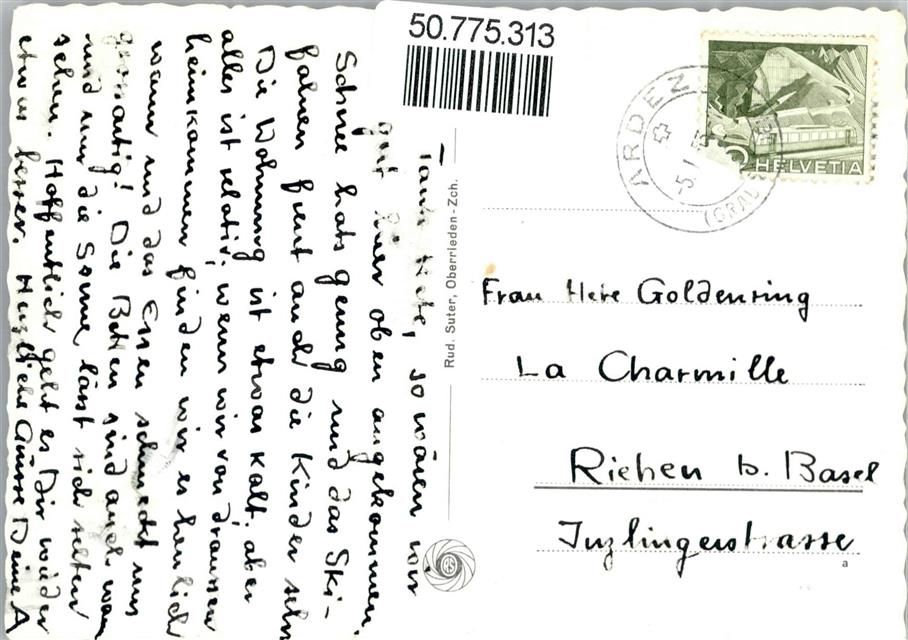 50.775.313
HELVETIA
ARDEZ
(GRAUB
Rud. Suter, Oberrieden-Zch.
Frau Goldenring
La Charmille
Riehen b. Basel
Inzlingerstrasse
a
so wären wir
gut hier oben angekommen.
Schnee hats genug und das Ski-
fahren freut auch die Kinder sehr
Die Wohnung ist etwas kalt, aber
alles ist relativ; wenn wir von draussen
heimkommen finden wir es herrlich
warm und das Essen schmeckt uns
grossartig! Die Betten sind auch warm
und nur die Sonne lässt sich selten
sehen. Hoffentlich geht es Dir wieder
etwas besser. Herzliche Grüsse Deine A